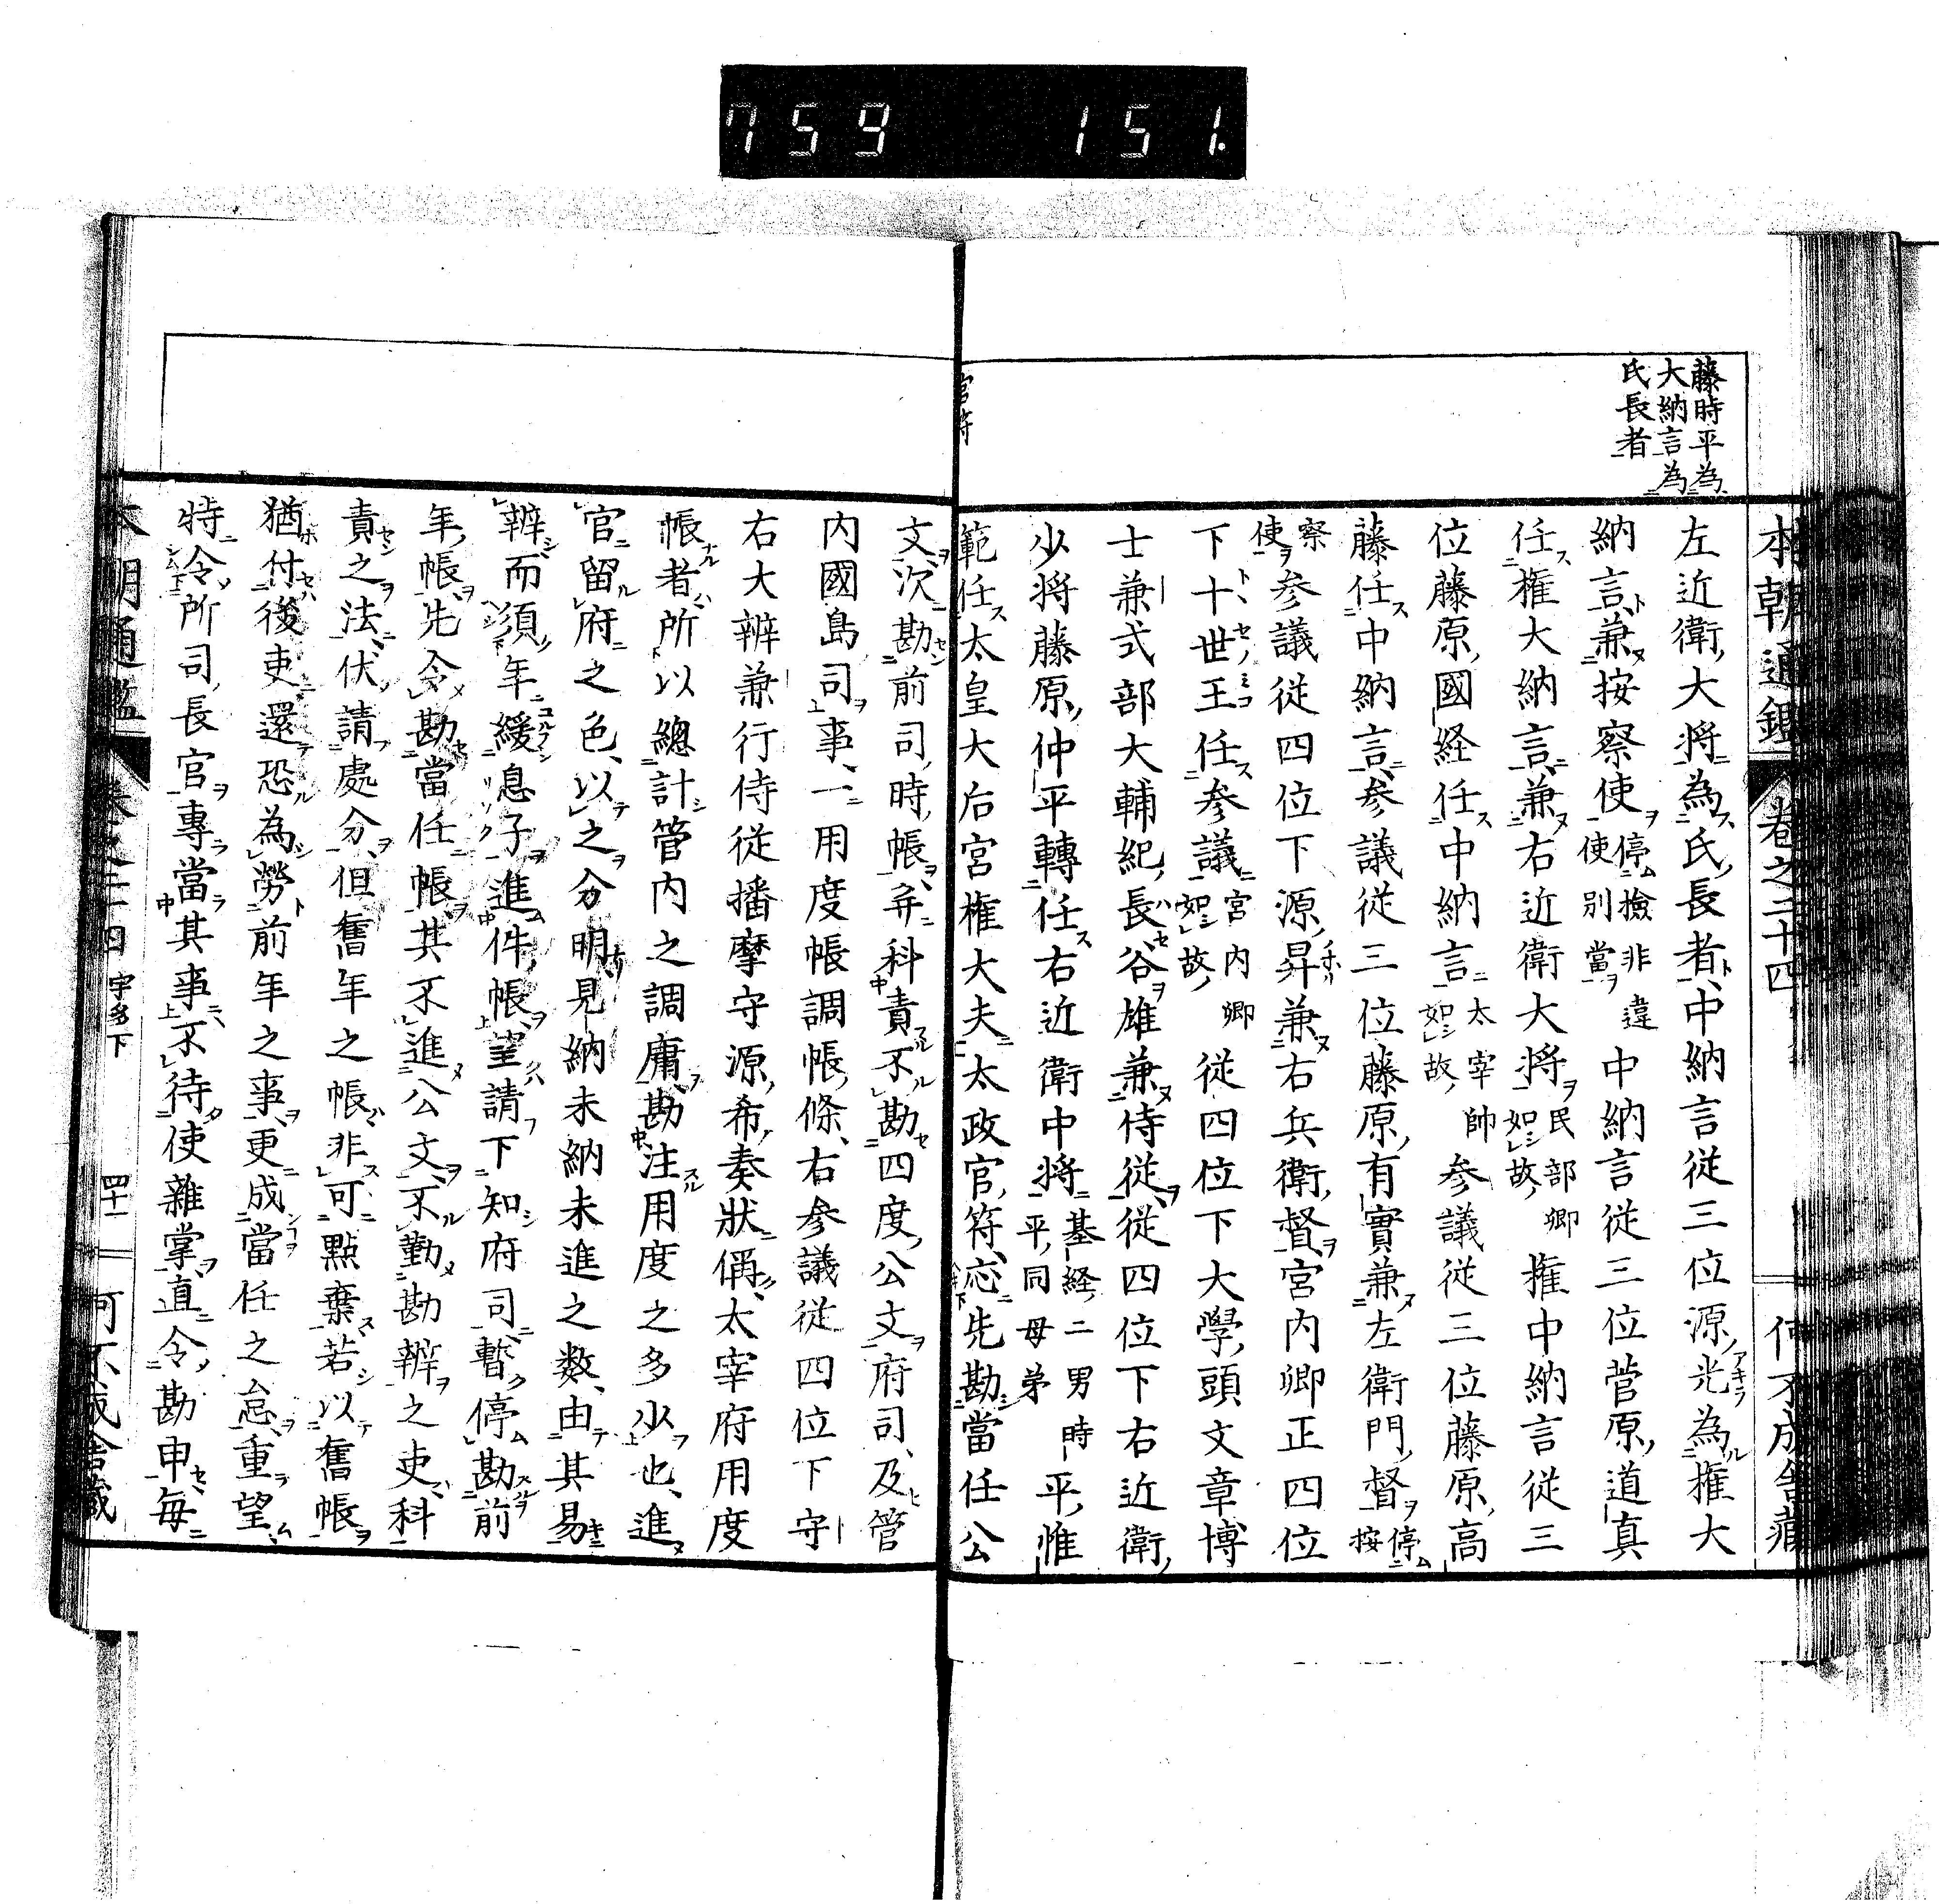 759 151.
藤時平為
大納言為
氏長者
本朝通鑑 卷之二十四 何不成舎蔵
左近衛大将為氏長者中納言従三位源光為権大
納言兼按察使停撿非違使別當中納言従三位菅原道真
任権大納言兼右近衛大将民部卿如故権中納言従三
位藤原國経任中納言太宰帥如故参議従三位藤原高
藤任中納言参議従三位藤原有實兼左衛門督停按
察使参議従四位下源昇兼右兵衛督宮内卿正四位
下十世王任参議宮内卿如故従四位下大學頭文章博
士兼式部大輔紀長谷雄兼侍従従四位下右近衛
少将藤原仲平轉任右近衛中将基経二男時平同母弟平惟
範任太皇大后宮権大夫太政官符応先勘當任公
官符
文次勘前司時帳并科責不勘四度公文府司及管
内國島司事一用度帳調帳條右参議従四位下守
右大辨兼行侍従播摩守源希奏狀偁太宰府用度
帳者所以總計管内之調庸勘注用度之多少也進
官留府之色以之分明見納未納未進之数由其易
辨而須年緩息子進件帳望請下知府司暫停勘前
年帳先令勘當任帳其不進公文不勤勘辨之吏科
責之法伏請處分但舊年之帳非可點棄若以舊帳
猶付後吏還恐為勞前年之事更成當任之怠重望
特令所司長官專當其事不待使雜掌直令勘申毎
本朝通鑑 卷之二十四 宇多下 四十一 何不成舎蔵